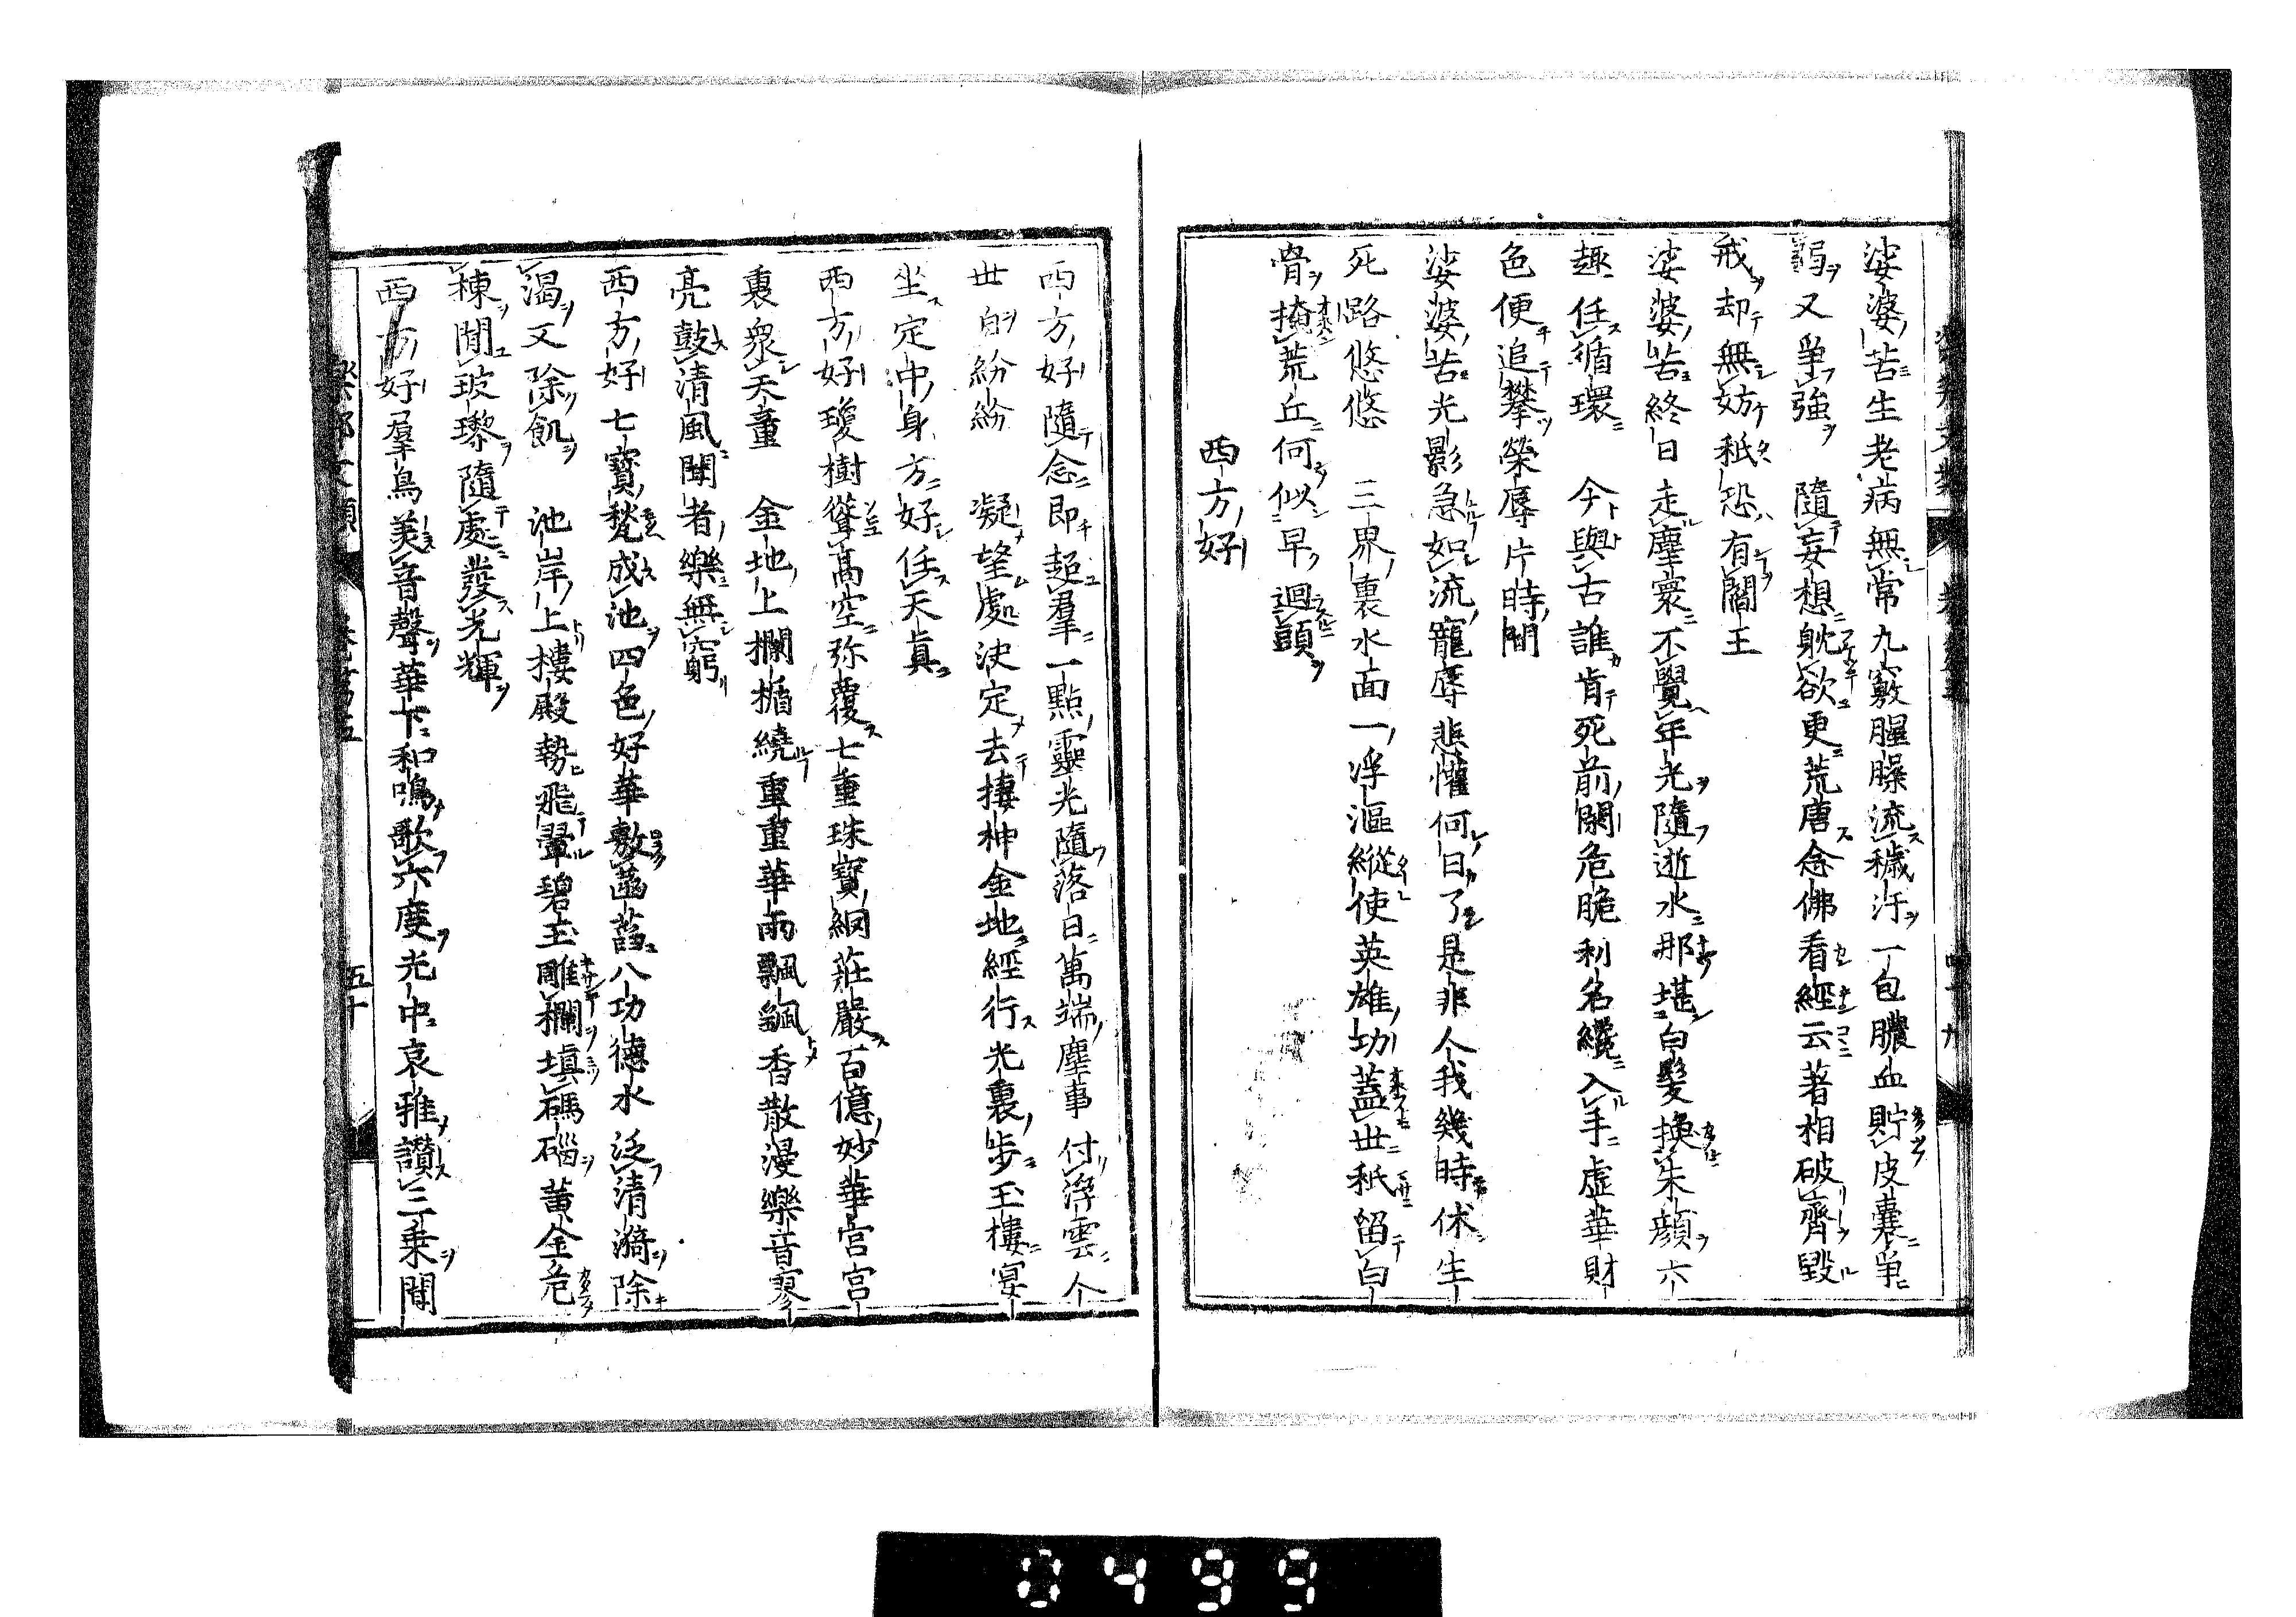 娑婆苦生老病無常九竅腥臊流穢汙一包膿血貯皮囊爭
弱又爭強　隨妄想躭欲更荒唐念佛看經云著相破齋毀
戒却無妨秖恐有閻王
娑婆苦終日走塵寰不覺年光隨逝水那堪白髮換朱顏六
趣任循環　今與古誰肯死前閑危脆利名纔入手虛華財
色便追攀榮辱片時間
娑婆苦光影急如流寵辱悲懽何日了是非人我幾時休生
死路悠悠　三界裏水面一浮漚縱使英雄功蓋世秖留白
骨掩荒丘何似早迴頭
西方好
西方好隨念即超羣一點靈光隨落日萬端塵事付浮雲人
世自紛紛　凝望處決定去捿神金地經行光裏步玉樓宴
坐定中身方好任天真
西方好瓊樹聳高空弥覆七重珠寶網莊嚴百億妙華宮宮
裏眾天童　金地上欄楯繞重重華雨飄颻香散漫樂音寥
亮鼓清風聞者樂無窮
西方好七寶甃成池四色好華敷菡萏八功德水泛清漪除
渴又除飢　池岸上樓殿勢飛翬碧玉雕欄填碼碯黃金危
棟間玻瓈隨處發光輝
西方好羣鳥美音聲華下和鳴歌六度光中哀雅讚三乘聞
樂邦文類　卷第五　五十
0499